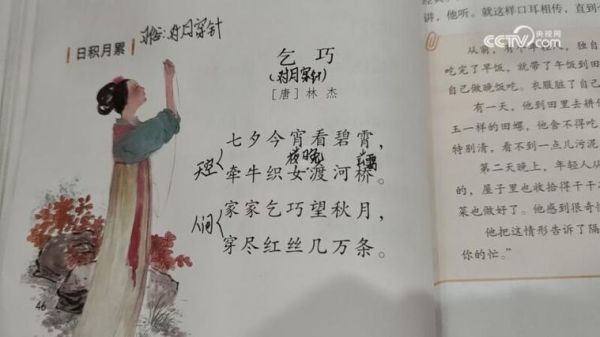 日积月累
对月穿针
乞巧
(对月穿针)
[唐] 林杰
七夕今宵看碧霄，
夜晚
天空
牵牛织女渡河桥。
人间
家家乞巧望秋月，
穿尽红丝几万条。
46
讲，他听。就这样口耳相传，直到
CCTV.com 央视网
从前，
独自
吃完了早饭，就带了午饭到田
自己做晚饭吃。衣服脏了自己
有一天，他到田里去耕
玉一样的田螺，他舍不得吃
特别清，看不到一点儿污泥
第二天晚上，年轻人从
的，屋子里也收拾得干干
菜也做好了。他感到很奇
他把这情形告诉了隔
你的忙。”